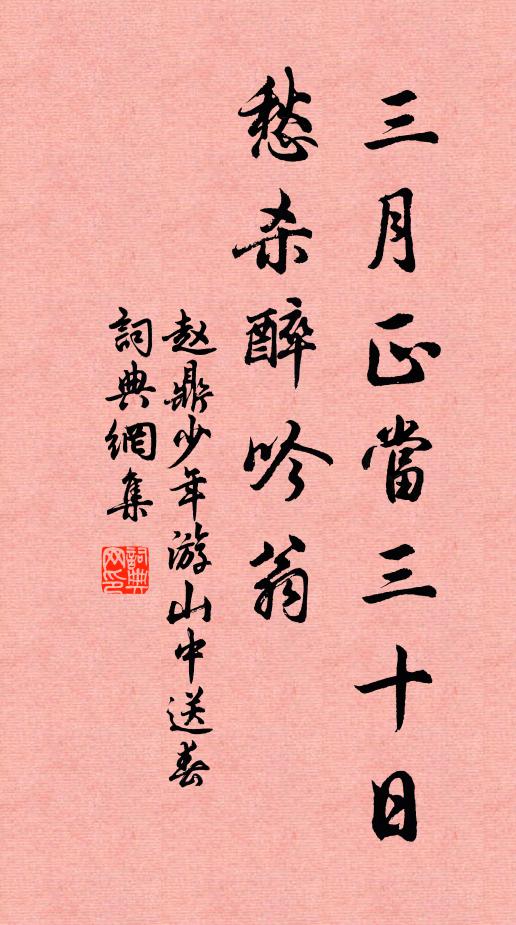 三月正當三十日
愁杀醉吟翁
赵鼎少年游山中送春
詞典網集
詞典网印